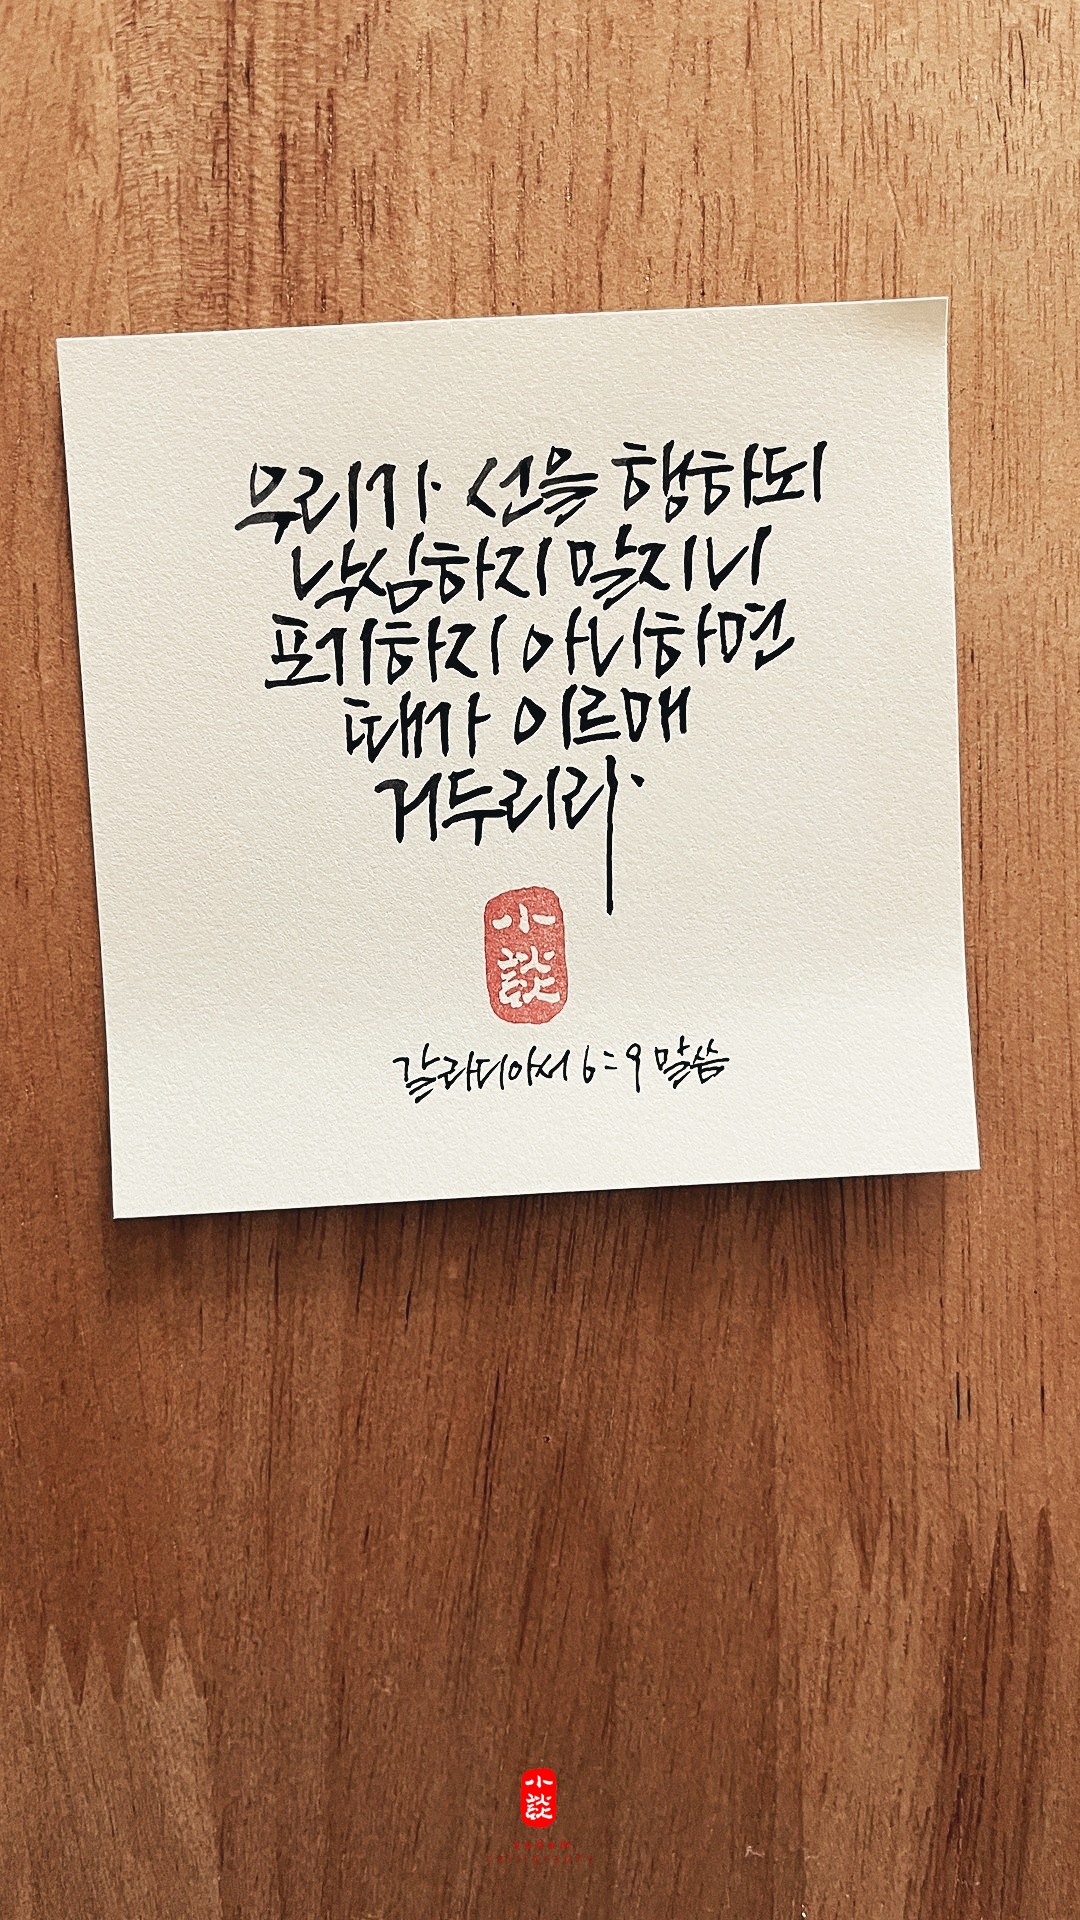 우리가 선을 행하되
낙심하지 말지니
포기하지 아니하면
때가 이르매
거두리라
小
談
갈라디아서 6:9 말씀
小
談